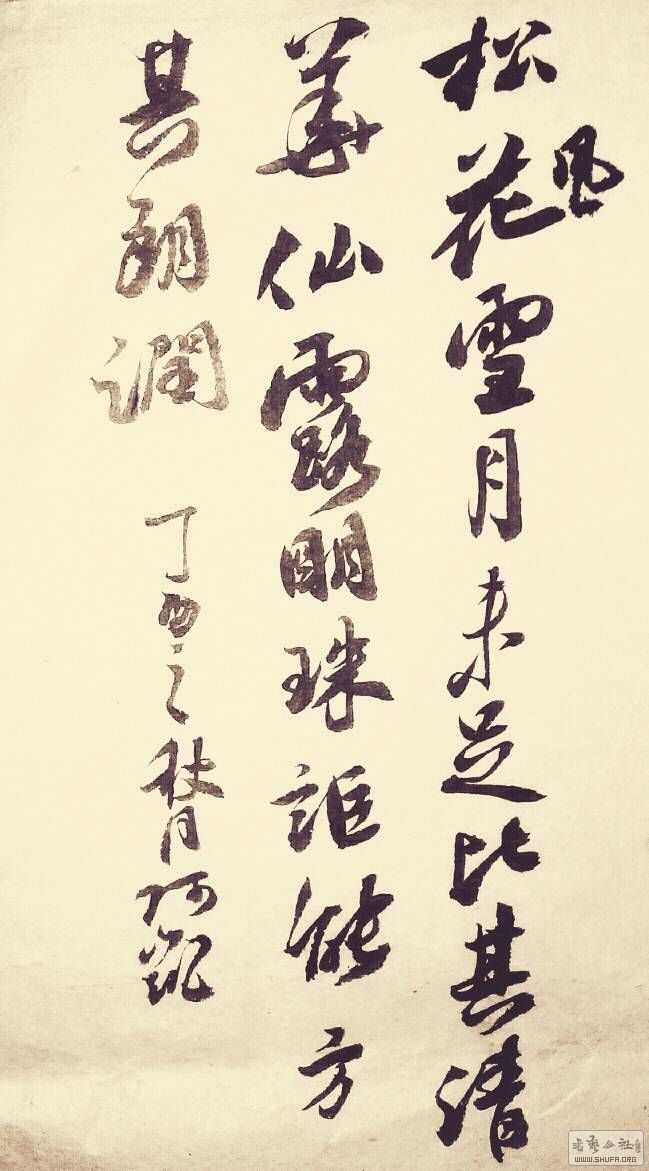 松风花雪月未足比其清
華仙露明珠詎能方
其朗潤
丁酉之秋月阿凯
書藝公社
WWW.SHUFA.ORG